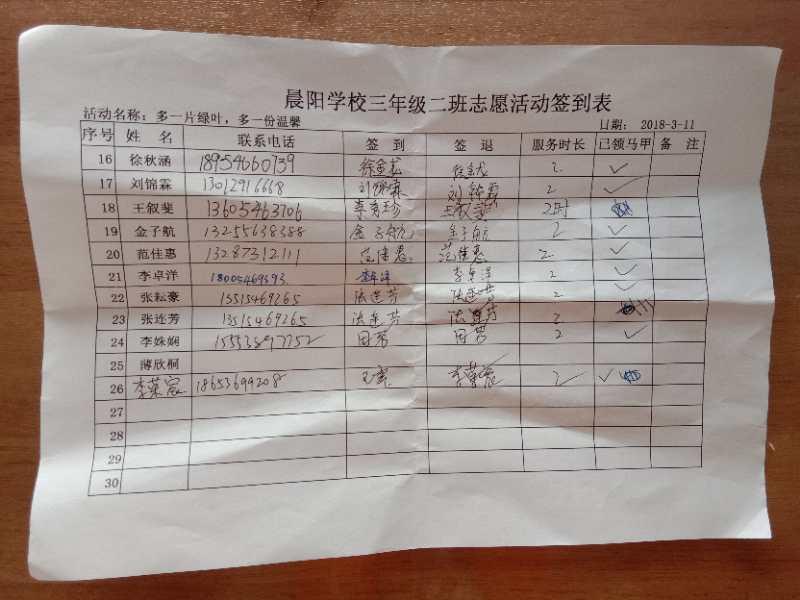 晨阳学校三年级二班志愿活动签到表
活动名称：多一片绿叶，多一份温馨 日期： 2018-3-11
序号 姓 名 联系电话 签 到 签 退 服务时长 已领马甲 备 注
16 徐秋涵 18954660739 2 ✓
17 刘锦霖 13012916668 刘锦霖 刘锦霖 2 ✓
18 王叙斐 13605463706 李秀珍 王叙斐 2时
19 金子航 13255638388 金子航 金子航 2 ✓
20 范佳惠 13287312111 范佳惠 范佳惠 2 ✓
21 李卓洋 18005469393 李卓洋 李卓洋 2 ✓
22 张耘豪 15515469265 张连芳 张连芳 2 ✓
23 张连芳 13515469265 张连芳 张连芳 2
24 李姝娴 15553897752 田芳 田芳 2 ✓
25 薄欣桐
26 李莱宸 18653699208 李莱宸 2 ✓
27
28
29
30